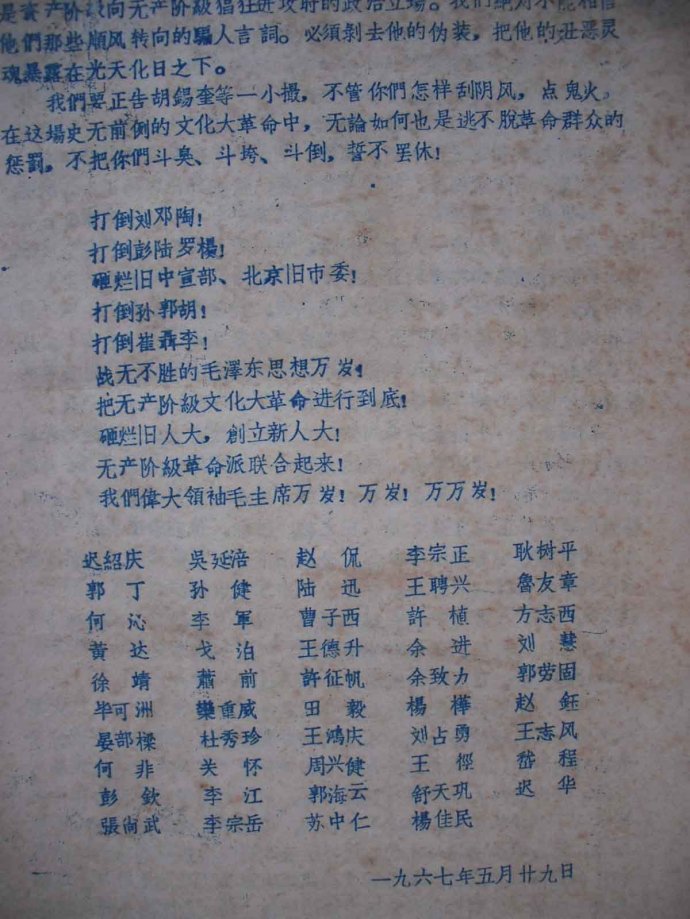 是资产阶级向无产阶级猖狂进攻时的政治立場。我們絕对不能相信
他們那些順风转向的騙人言詞。必須剝去他的伪装，把他的丑恶灵
魂暴露在光天化日之下。
我們要正告胡錫奎等一小撮，不管你們怎样刮阴风，点鬼火，
在这場史无前例的文化大革命中，无論如何也是逃不脫革命群众的
惩罰，不把你們斗臭、斗垮、斗倒，誓不罢休！
打倒刘邓陶！
打倒彭陆罗楊！
砸烂旧中宣部、北京旧市委！
打倒孙郭胡！
打倒崔聶李！
战无不胜的毛澤东思想万岁！
把无产阶級文化大革命进行到底！
砸烂旧人大，創立新人大！
无产阶級革命派联合起来！
我們偉大領袖毛主席万岁！万岁！万万岁！
迟紹庆 吳延涪 赵侃 李宗正 耿树平
郭丁 孙健 陆迅 王聘兴 魯友章
何沁 李軍 曹子西 許植 方志西
黃达 戈泊 王德升 余进 刘慧
徐靖 蕭前 許征帆 余致力 郭劳固
毕可洲 欒重威 田毅 楊樺 赵鈺
晏部樑 杜秀珍 王鴻庆 刘占勇 王志风
何非 关怀 周兴健 王徑 嵇程
彭欽 李江 郭海云 舒天巩 迟华
張尙武 李宗岳 苏中仁 楊佳民
一九六七年五月廿九日